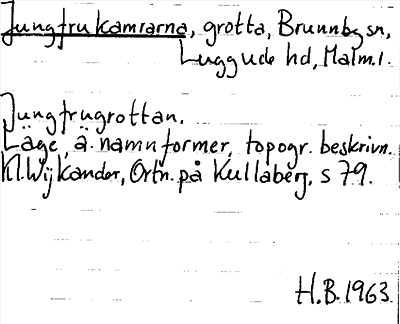 Jungfrukamrarna, grotta, Brunnby sn,
Luggude hd, Malm.l.
Jungfrugrottan.
Läge, ä. namnformer, topogr. beskrivn.
Kl. Wijkander, Ortn. på Kullaberg, s 79.
H.B. 1963.